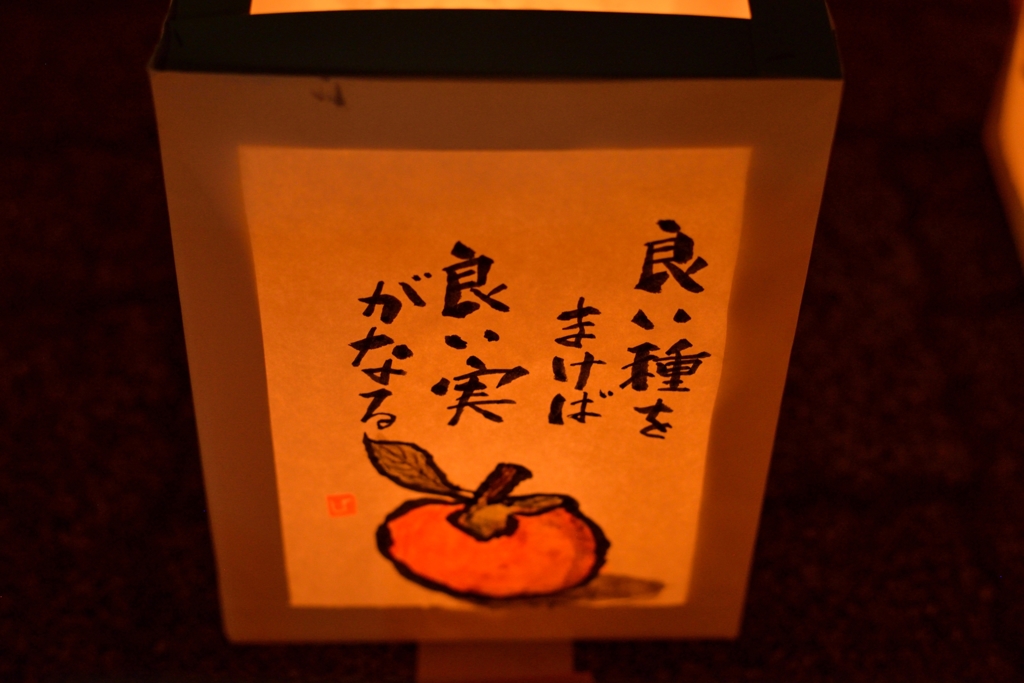 良い種を
まけば
良い実
がなる